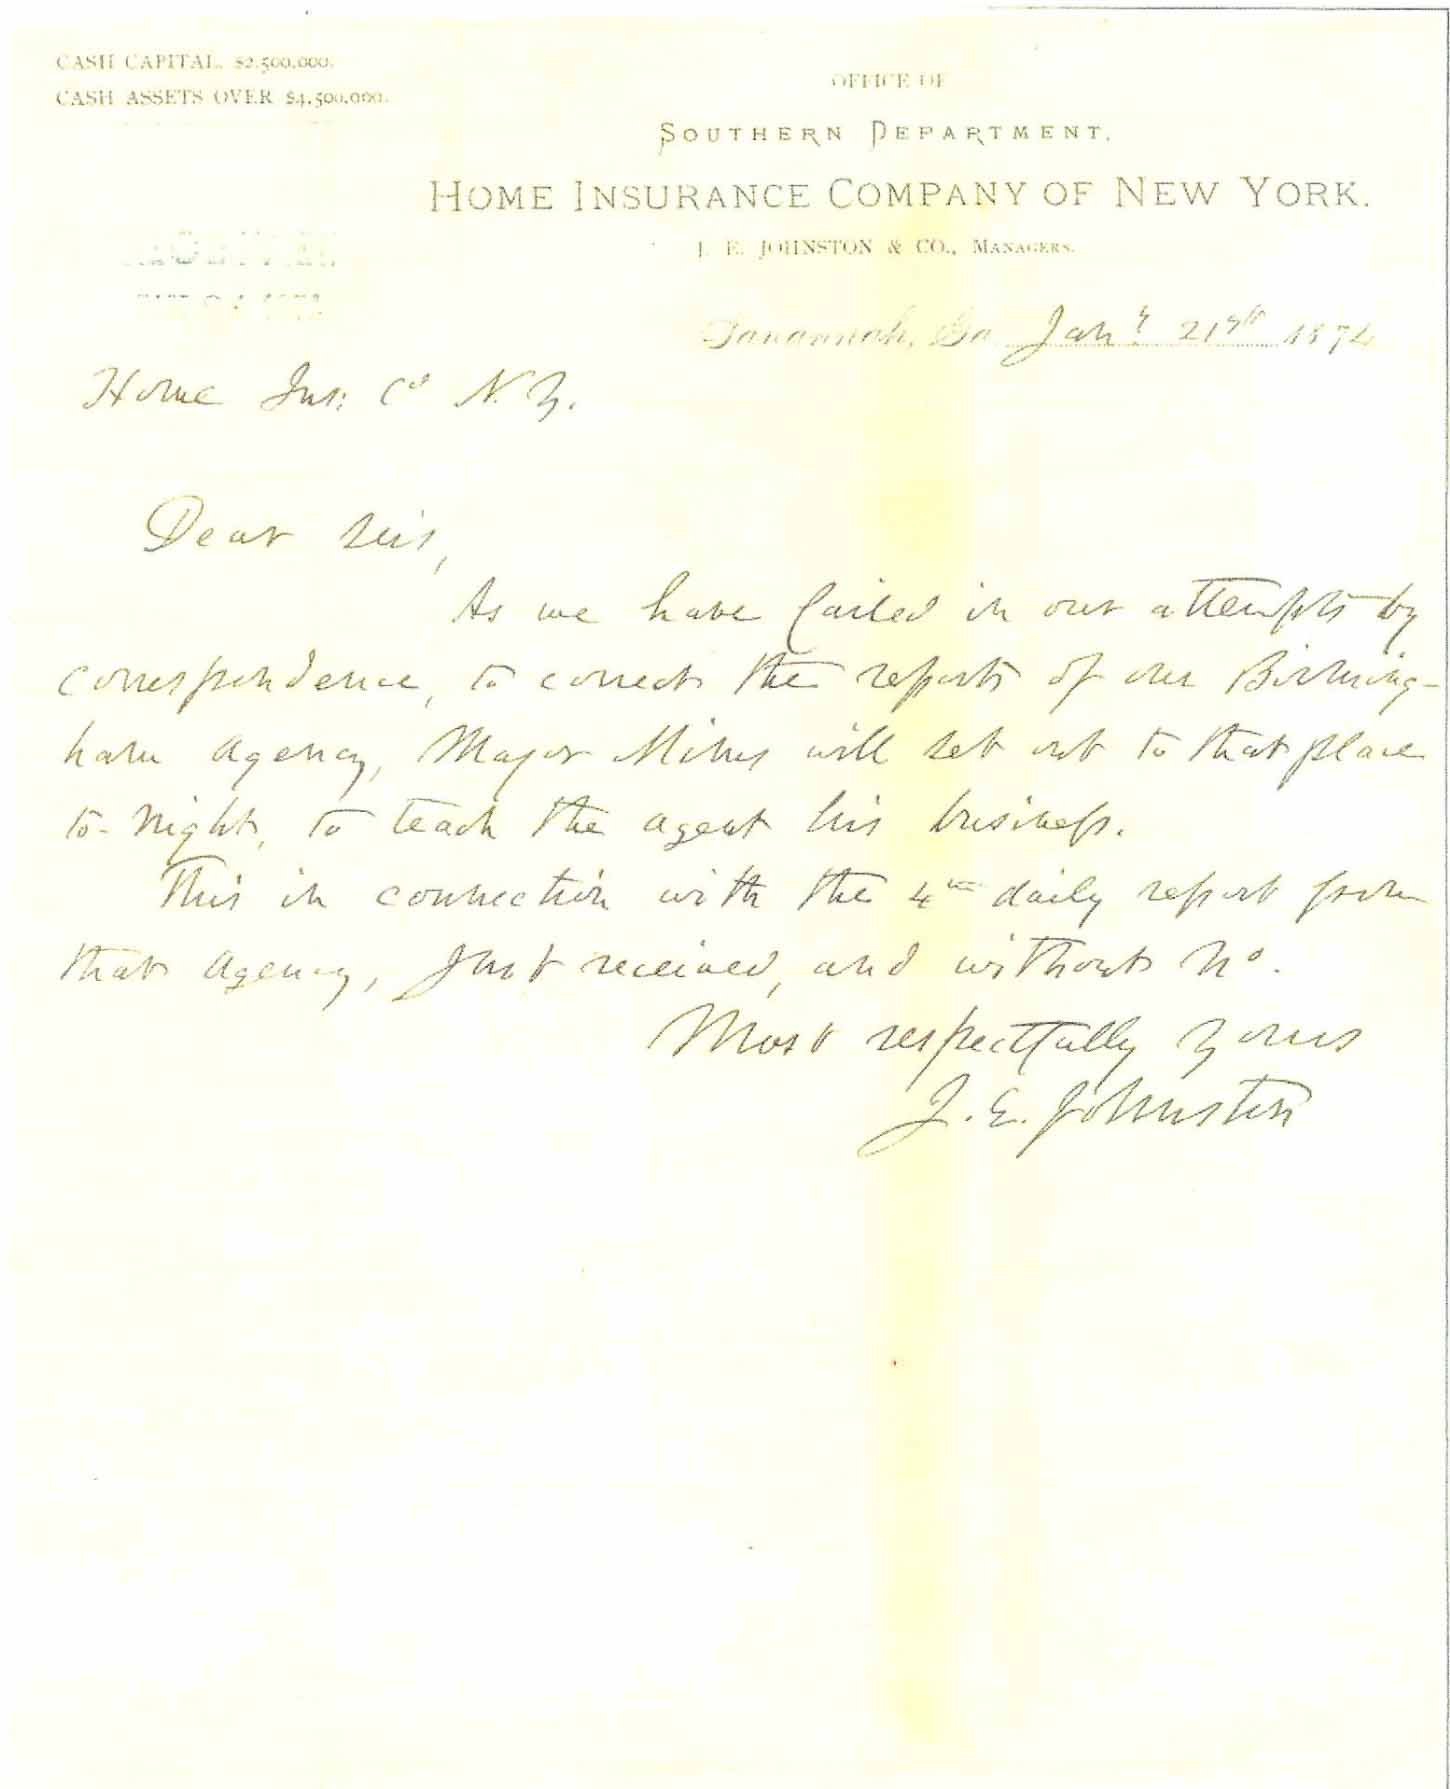 CASH CAPITAL, $2,500,000.
CASH ASSETS OVER $4,500,000.
OFFICE OF
SOUTHERN DEPARTMENT.
HOME INSURANCE COMPANY OF NEW YORK.
J. E. JOHNSTON & CO., MANAGERS.
Savannah, Ga. Jany 21st 1874
Home Ins: Co N.Y.
Dear Sirs,
As we have failed in our attempts by
correspondence, to correct the reports of our Birming-
ham agency, Major will set out to that place
to-night, to teach the agent his business.
This in connection with the 4th daily report from
that agency, just received, and without No.
Most respectfully yours
J. E. Johnston